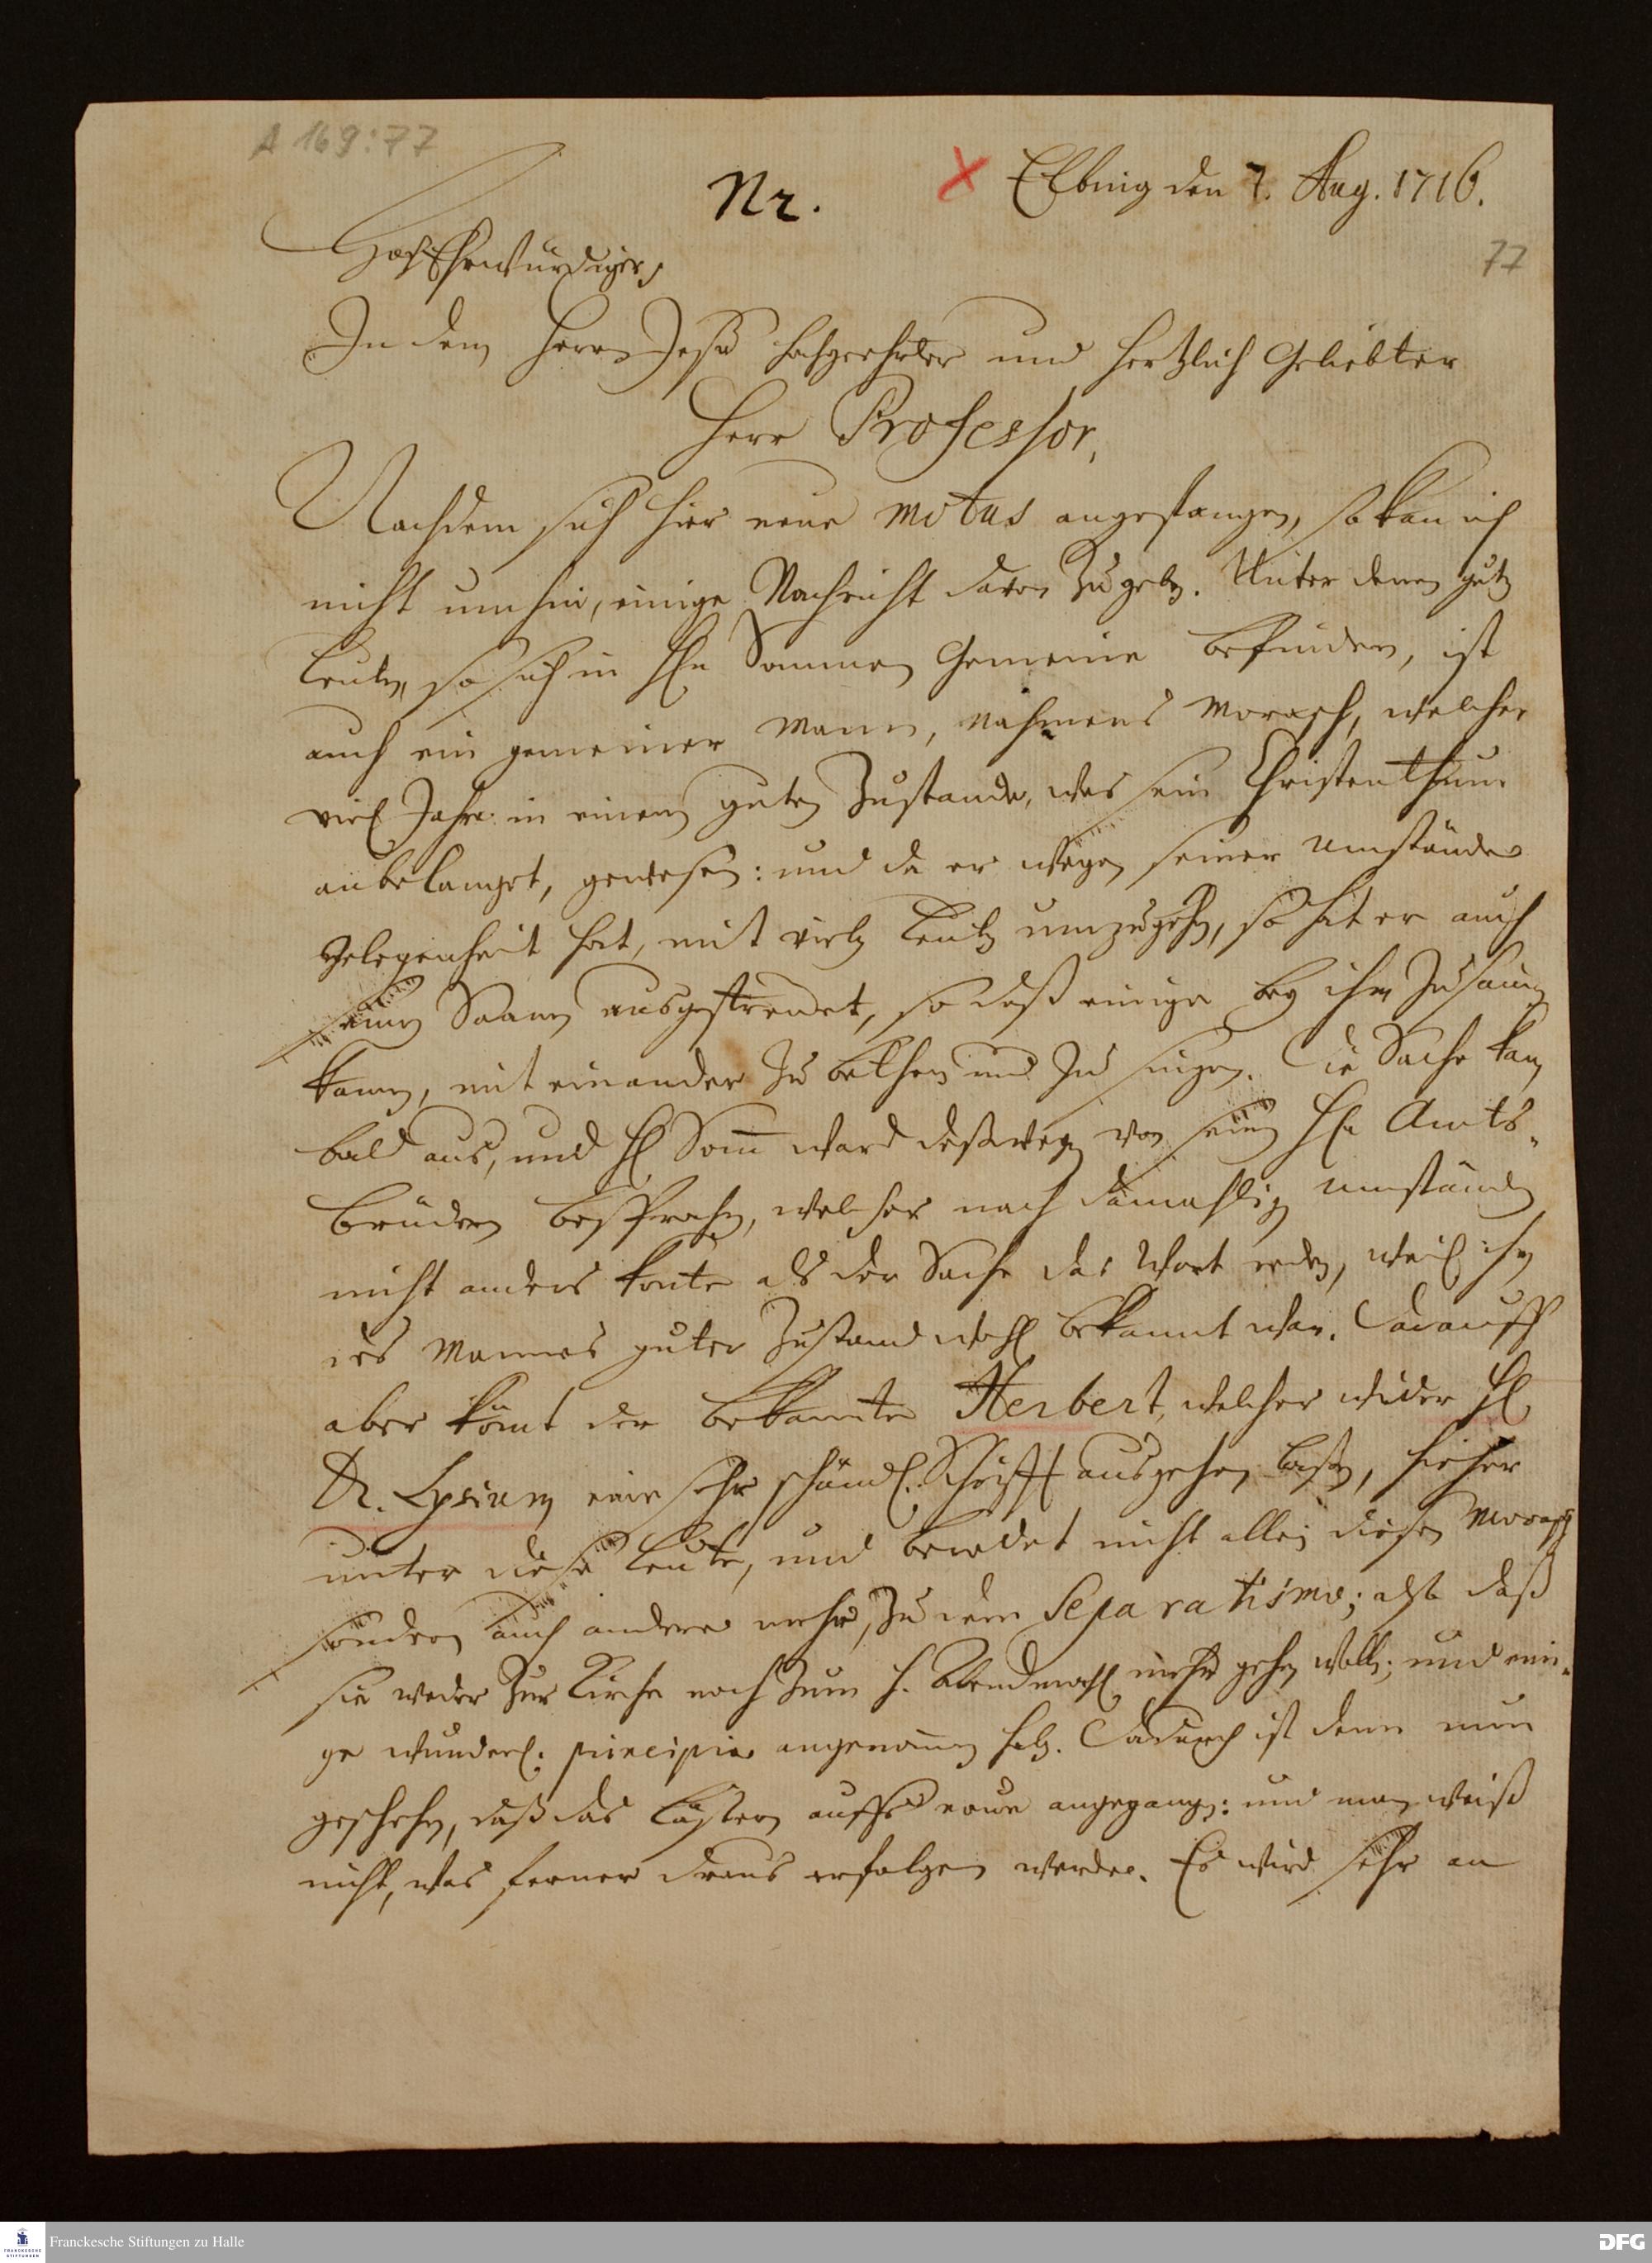 A 169:77
Nr.
Elbing den 7. Aug. 1716.
77
HochEhrwürdiger,
In dem Herrn Jesu hochgeehrter und hertzlich Geliebter
Herr Professor,
Nachdem sich hier neue motus angefangen, so kan ich
nicht umhin, einige Nachricht davon zu geben. Unter denen guten
Leuten, so sich in Hn Sommen Gemeine befinden, ist
auch ein gemeiner Mann, nahmens Morasch, welcher
viel Jahre in einem guten Zustande, was sein Christenthum
anbelanget, gewesen: und da er wegen seiner umstände
gelegenheit hat, mit vielen Leuten umzugehen, so hat er auch
seinen Saamen ausgestreuet, so daß einige bey ihm zusammen
kamen, mit einander zu bethen und zu singen. Die Sache kam
bald aus, und H. Som̄ ward deßwegen von seinen Hn Amts-
brüdern besprochen, welcher nach damahligen umständen
nicht anders konte als der Sache das Wort reden, weil ihm
des Mannes guter Zustand wohl bekannt war. Darauff
aber kömt der bekannte Herbert, welcher wider H.
D. Lysium eine sehr schändl. Schrifft ausgehen laßen, hieher
unter diese Leute, und beredet nicht allein diesen Morasch
sondern auch andere mehr, zu dem Separatismo; also daß
sie weder zur Kirche noch zum H. Abendmahl mehr gehen wollen; und eini-
ge wunderl. principia angenom̄en haben. Dadurch ist denn nun
geschehen, daß das Lästern auffs neue angegangen: und man weiß
nicht, was ferner draus erfolgen werde. Es wird sehr an
Franckesche Stiftungen zu Halle
FRANCKESCHE STIFTUNGEN
DFG